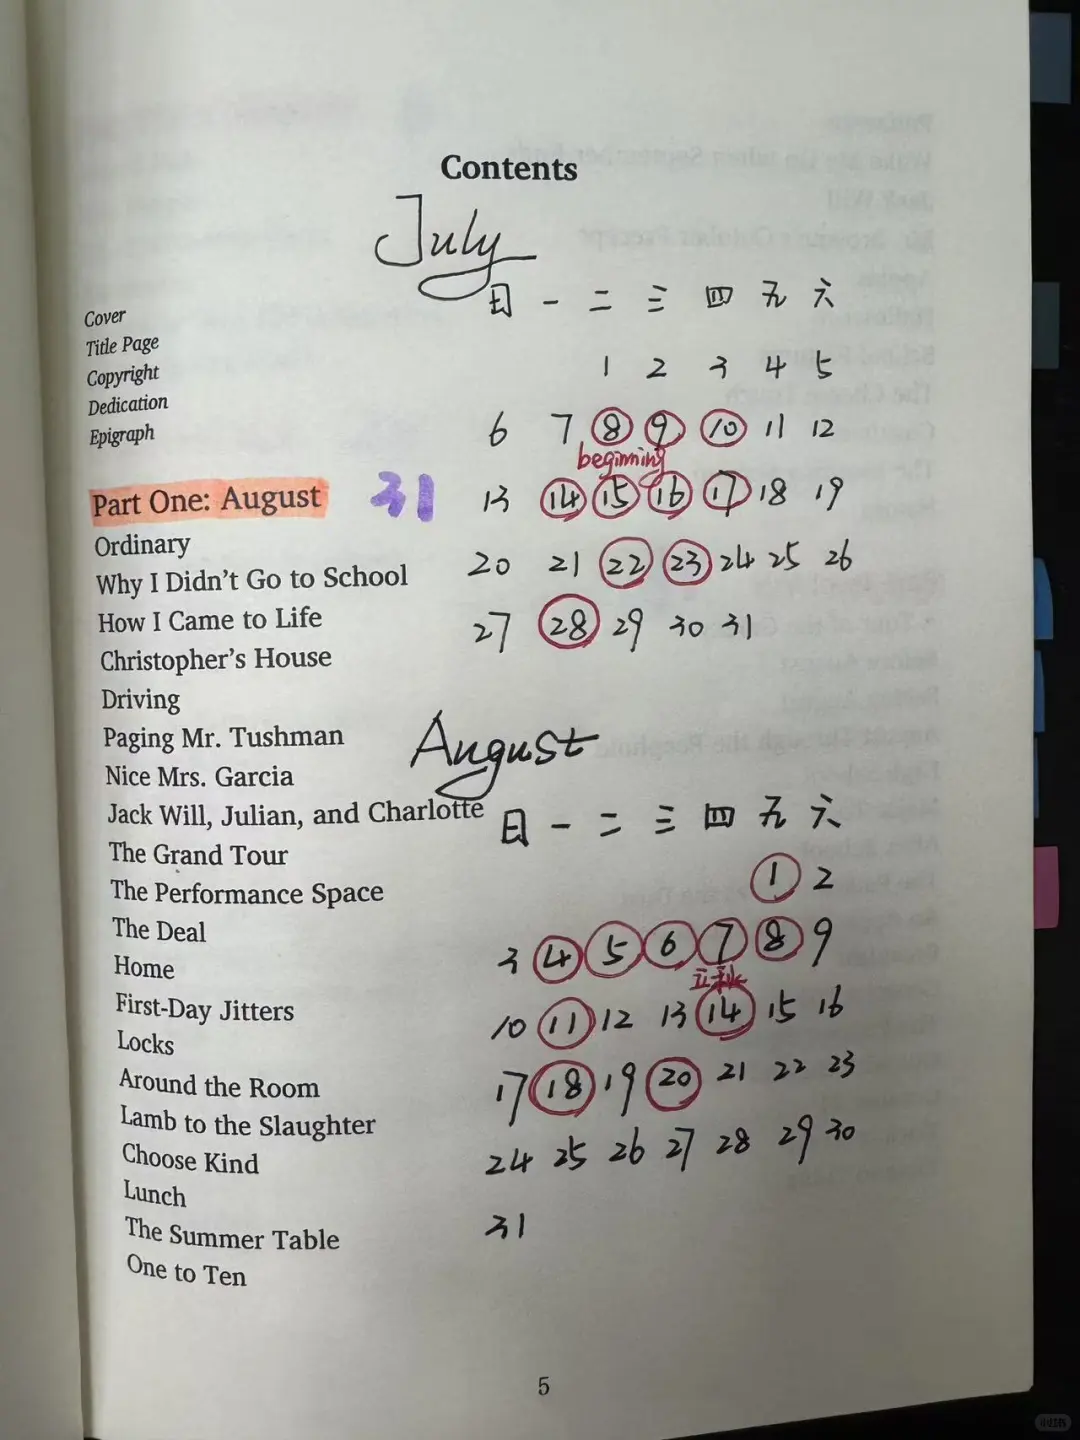 Contents
July
日 一 二 三 四 五 六
1 2 3 4 5
6 7 8 9 10 11 12
beginning
13 14 15 16 17 18 19
20 21 22 23 24 25 26
27 28 29 30 31
Cover
Title Page
Copyright
Dedication
Epigraph
Part One: August 31
Ordinary
Why I Didn't Go to School
How I Came to Life
Christopher's House
Driving
Paging Mr. Tushman
Nice Mrs. Garcia
Jack Will, Julian, and Charlotte
The Grand Tour
The Performance Space
The Deal
Home
First-Day Jitters
Locks
Around the Room
Lamb to the Slaughter
Choose Kind
Lunch
The Summer Table
One to Ten
August
日 一 二 三 四 五 六
1 2
3 4 5 6 7 8 9
立秋
10 11 12 13 14 15 16
17 18 19 20 21 22 23
24 25 26 27 28 29 30
31
5